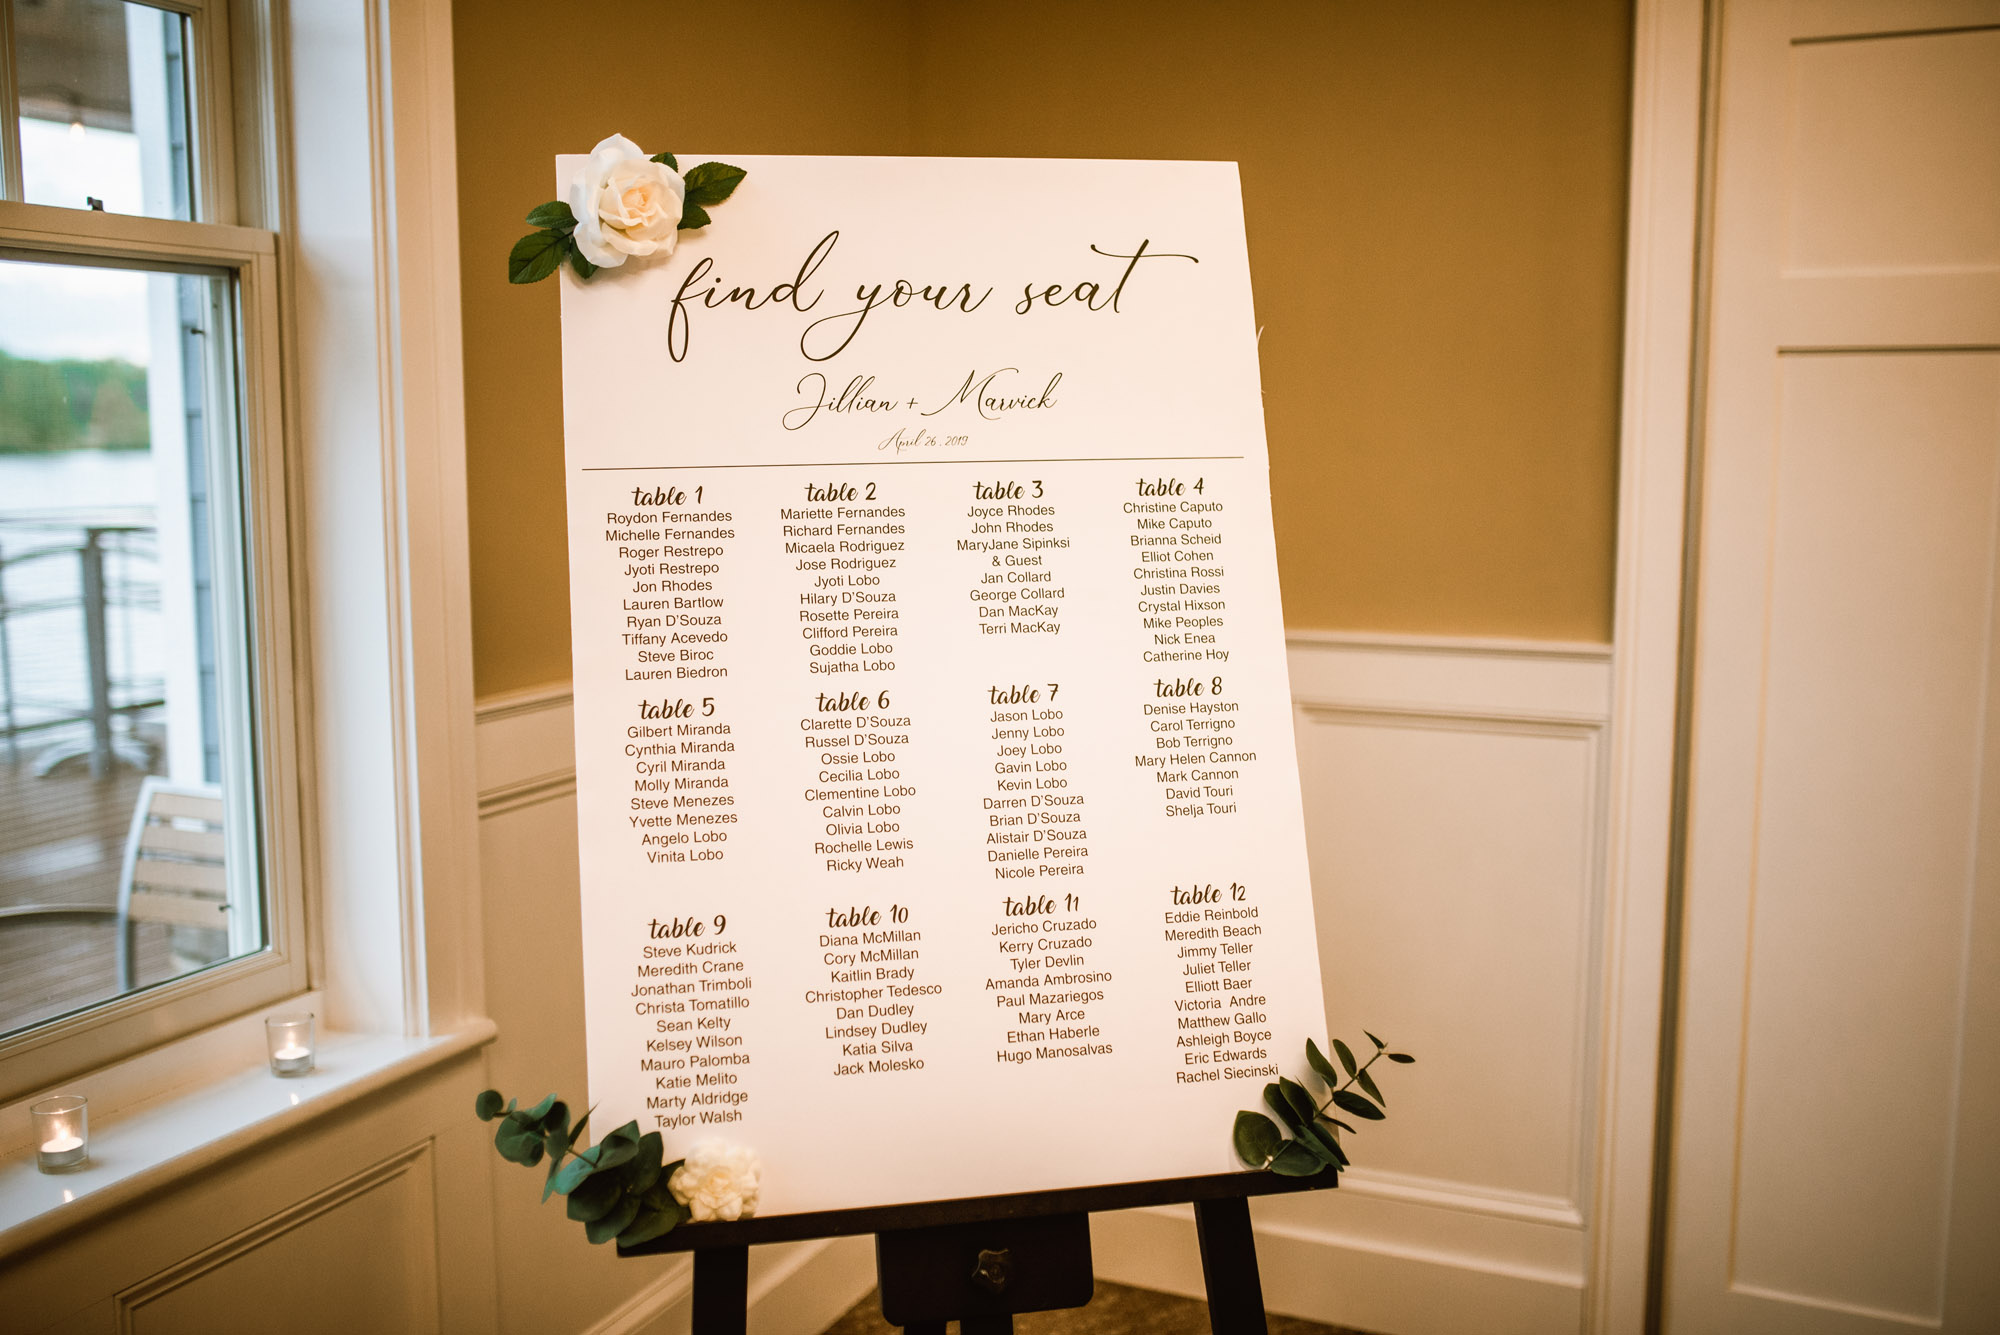 find your seat
Jillian + Marvick
April 26, 2019
table 1
Roydon Fernandes
Michelle Fernandes
Roger Restrepo
Jyoti Restrepo
Jon Rhodes
Lauren Bartlow
Ryan D'Souza
Tiffany Acevedo
Steve Biroc
Lauren Biedron
table 2
Mariette Fernandes
Richard Fernandes
Micaela Rodriguez
Jose Rodriguez
Jyoti Lobo
Hilary D'Souza
Rosette Pereira
Clifford Pereira
Goddie Lobo
Sujatha Lobo
table 3
Joyce Rhodes
John Rhodes
MaryJane Sipinksi
& Guest
Jan Collard
George Collard
Dan MacKay
Terri MacKay
table 4
Christine Caputo
Mike Caputo
Brianna Scheid
Elliot Cohen
Christina Rossi
Justin Davies
Crystal Hixson
Mike Peoples
Nick Enea
Catherine Hoy
table 5
Gilbert Miranda
Cynthia Miranda
Cyril Miranda
Molly Miranda
Steve Menezes
Yvette Menezes
Angelo Lobo
Vinita Lobo
table 6
Clarette D'Souza
Russel D'Souza
Ossie Lobo
Cecilia Lobo
Clementine Lobo
Calvin Lobo
Olivia Lobo
Rochelle Lewis
Ricky Weah
table 7
Jason Lobo
Jenny Lobo
Joey Lobo
Gavin Lobo
Kevin Lobo
Darren D'Souza
Brian D'Souza
Alistair D'Souza
Danielle Pereira
Nicole Pereira
table 8
Denise Hayston
Carol Terrigno
Bob Terrigno
Mary Helen Cannon
Mark Cannon
David Touri
Shelja Touri
table 9
Steve Kudrick
Meredith Crane
Jonathan Trimboli
Christa Tomatillo
Sean Kelty
Kelsey Wilson
Mauro Palomba
Katie Melito
Marty Aldridge
Taylor Walsh
table 10
Diana McMillan
Cory McMillan
Kaitlin Brady
Christopher Tedesco
Dan Dudley
Lindsey Dudley
Katia Silva
Jack Molesko
table 11
Jericho Cruzado
Kerry Cruzado
Tyler Devlin
Amanda Ambrosino
Paul Mazariegos
Mary Arce
Ethan Haberle
Hugo Manosalvas
table 12
Eddie Reinbold
Meredith Beach
Jimmy Teller
Juliet Teller
Elliott Baer
Victoria Andre
Matthew Gallo
Ashleigh Boyce
Eric Edwards
Rachel Siecinski